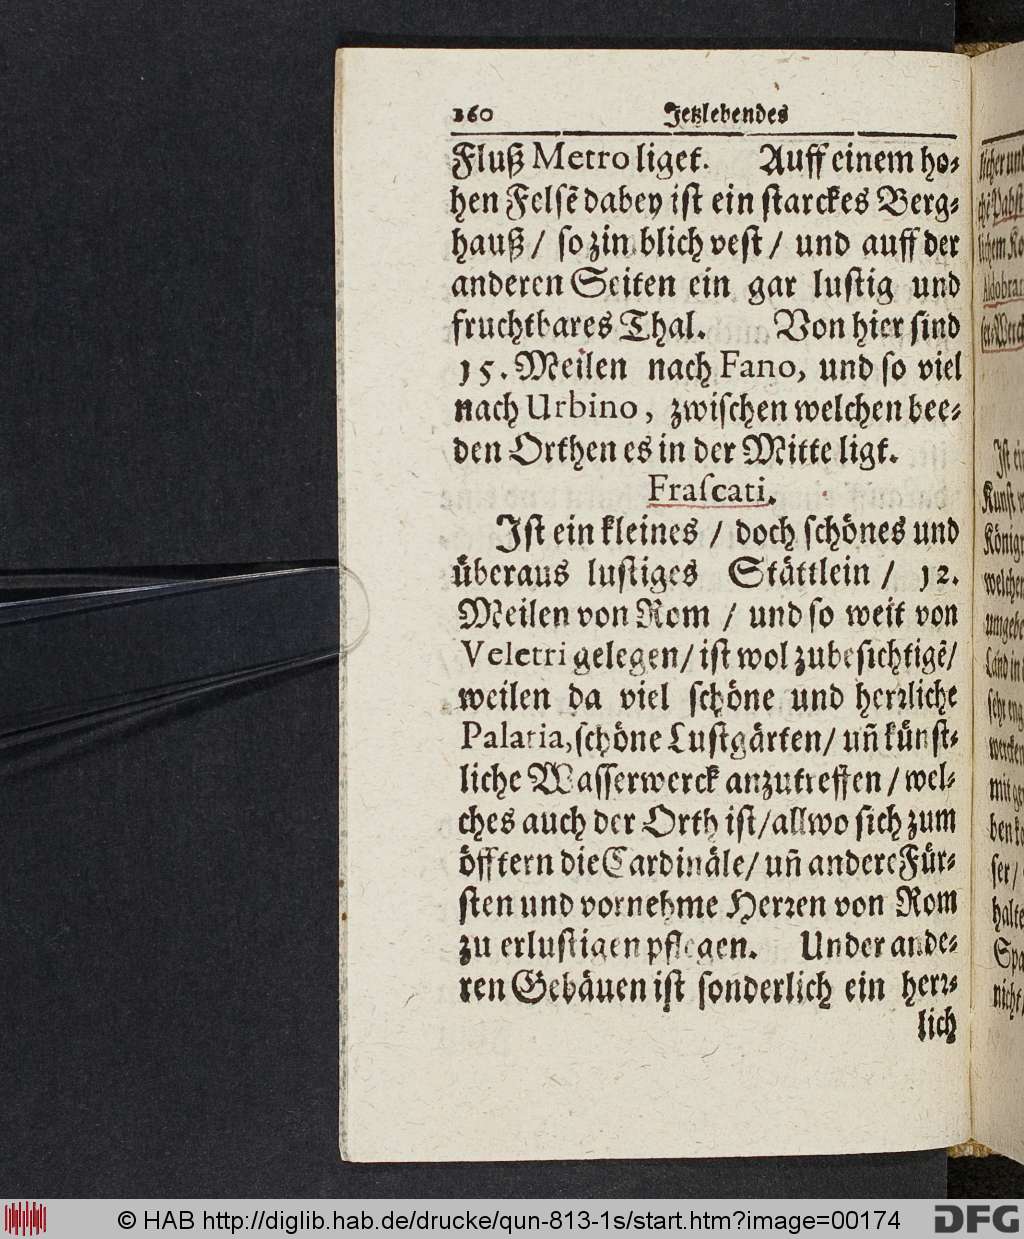 160 Jetzlebendes
Fluß Metro liget. Auff einem ho⸗
hen Felsẽ dabey ist ein starckes Berg⸗
hauß / so zimblich vest / und auff der
anderen Seiten ein gar lustig und
fruchtbares Thal. Von hier sind
15. Meilen nach Fano, und so viel
nach Urbino, zwischen welchen bee⸗
den Orthen es in der Mitte ligt.
Frascati.
Ist ein kleines / doch schönes und
überaus lustiges Stättlein / 12.
Meilen von Rom / und so weit von
Veletri gelegen / ist wol zubesichtigẽ /
weilen da viel schöne und herꝛliche
Palatia, schöne Lustgärten / uñ künst⸗
liche Wasserwerck anzutreffen / wel⸗
ches auch der Orth ist / allwo sich zum
öfftern die Cardinäle / uñ andere Für⸗
sten und vornehme Herꝛen von Rom
zu erlustigen pflegen. Under ande⸗
ren Gebäuen ist sonderlich ein herꝛ⸗
lich
© HAB http://diglib.hab.de/drucke/qun-813-1s/start.htm?image=00174
DFG